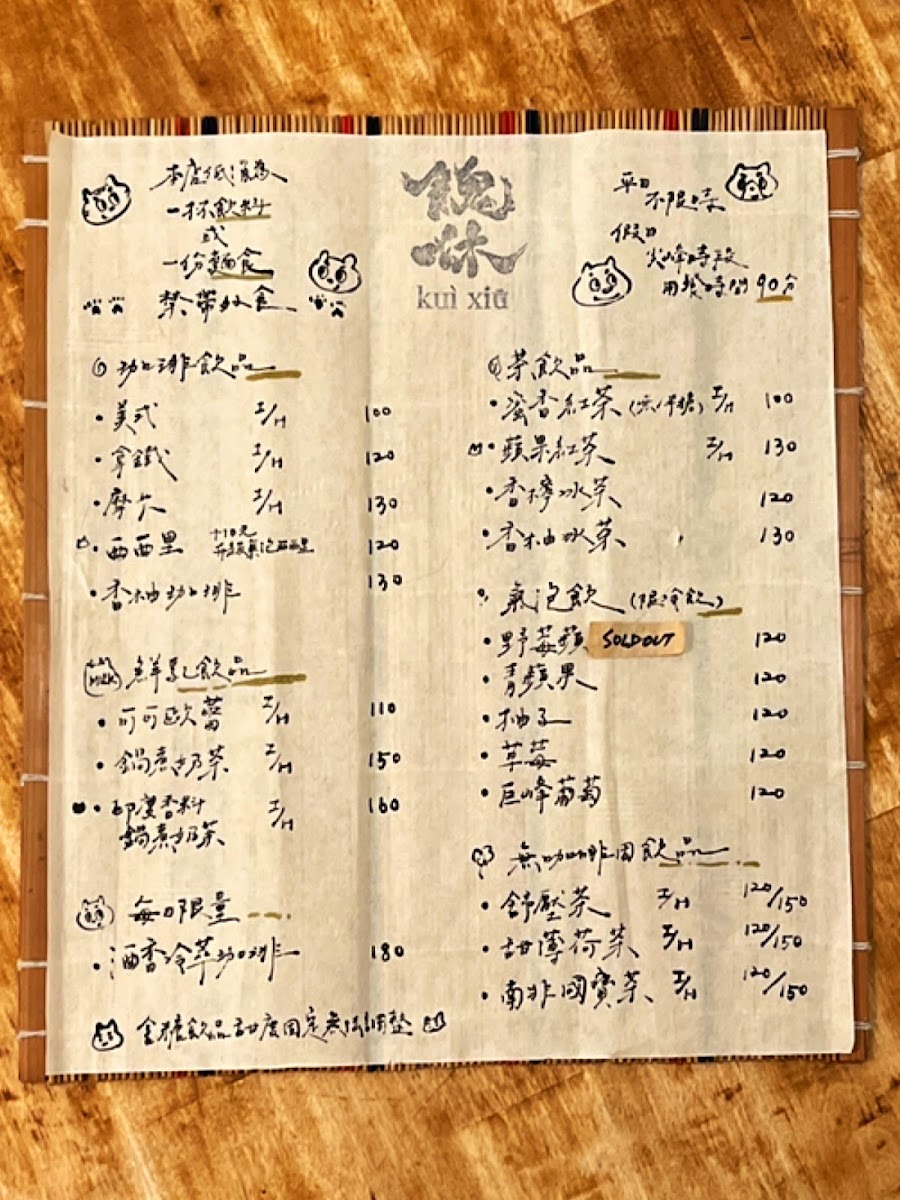 本店低消為
一杯飲料
或
一份麵食
禁帶外食
餽咻
kuì xiū
平日
不限時
假日
尖峰時段
用餐時間90分
咖啡飲品
美式 I/H 100
拿鐵 I/H 120
摩卡 I/H 130
西西里 +10元 升級氣泡西西里 120
香柚咖啡 130
MILK 鮮乳飲品
可可歐蕾 I/H 110
鍋煮奶茶 I/H 150
印度香料
鍋煮奶茶 I/H 160
每日限量
酒香冷萃咖啡 180
含糖飲品甜度固定無法調整
茶飲品
蜜香紅茶 (無/半糖) I/H 100
蘋果紅茶 I/H 130
香檸冰茶 120
香柚冰茶 130
氣泡飲 (限冷飲)
野莓蘋 SOLD OUT 120
青蘋果 120
柚子 120
草莓 120
巨峰葡萄 120
無咖啡因飲品
舒壓茶 I/H 120/150
甜薄荷茶 I/H 120/150
南非國寶茶 I/H 120/150